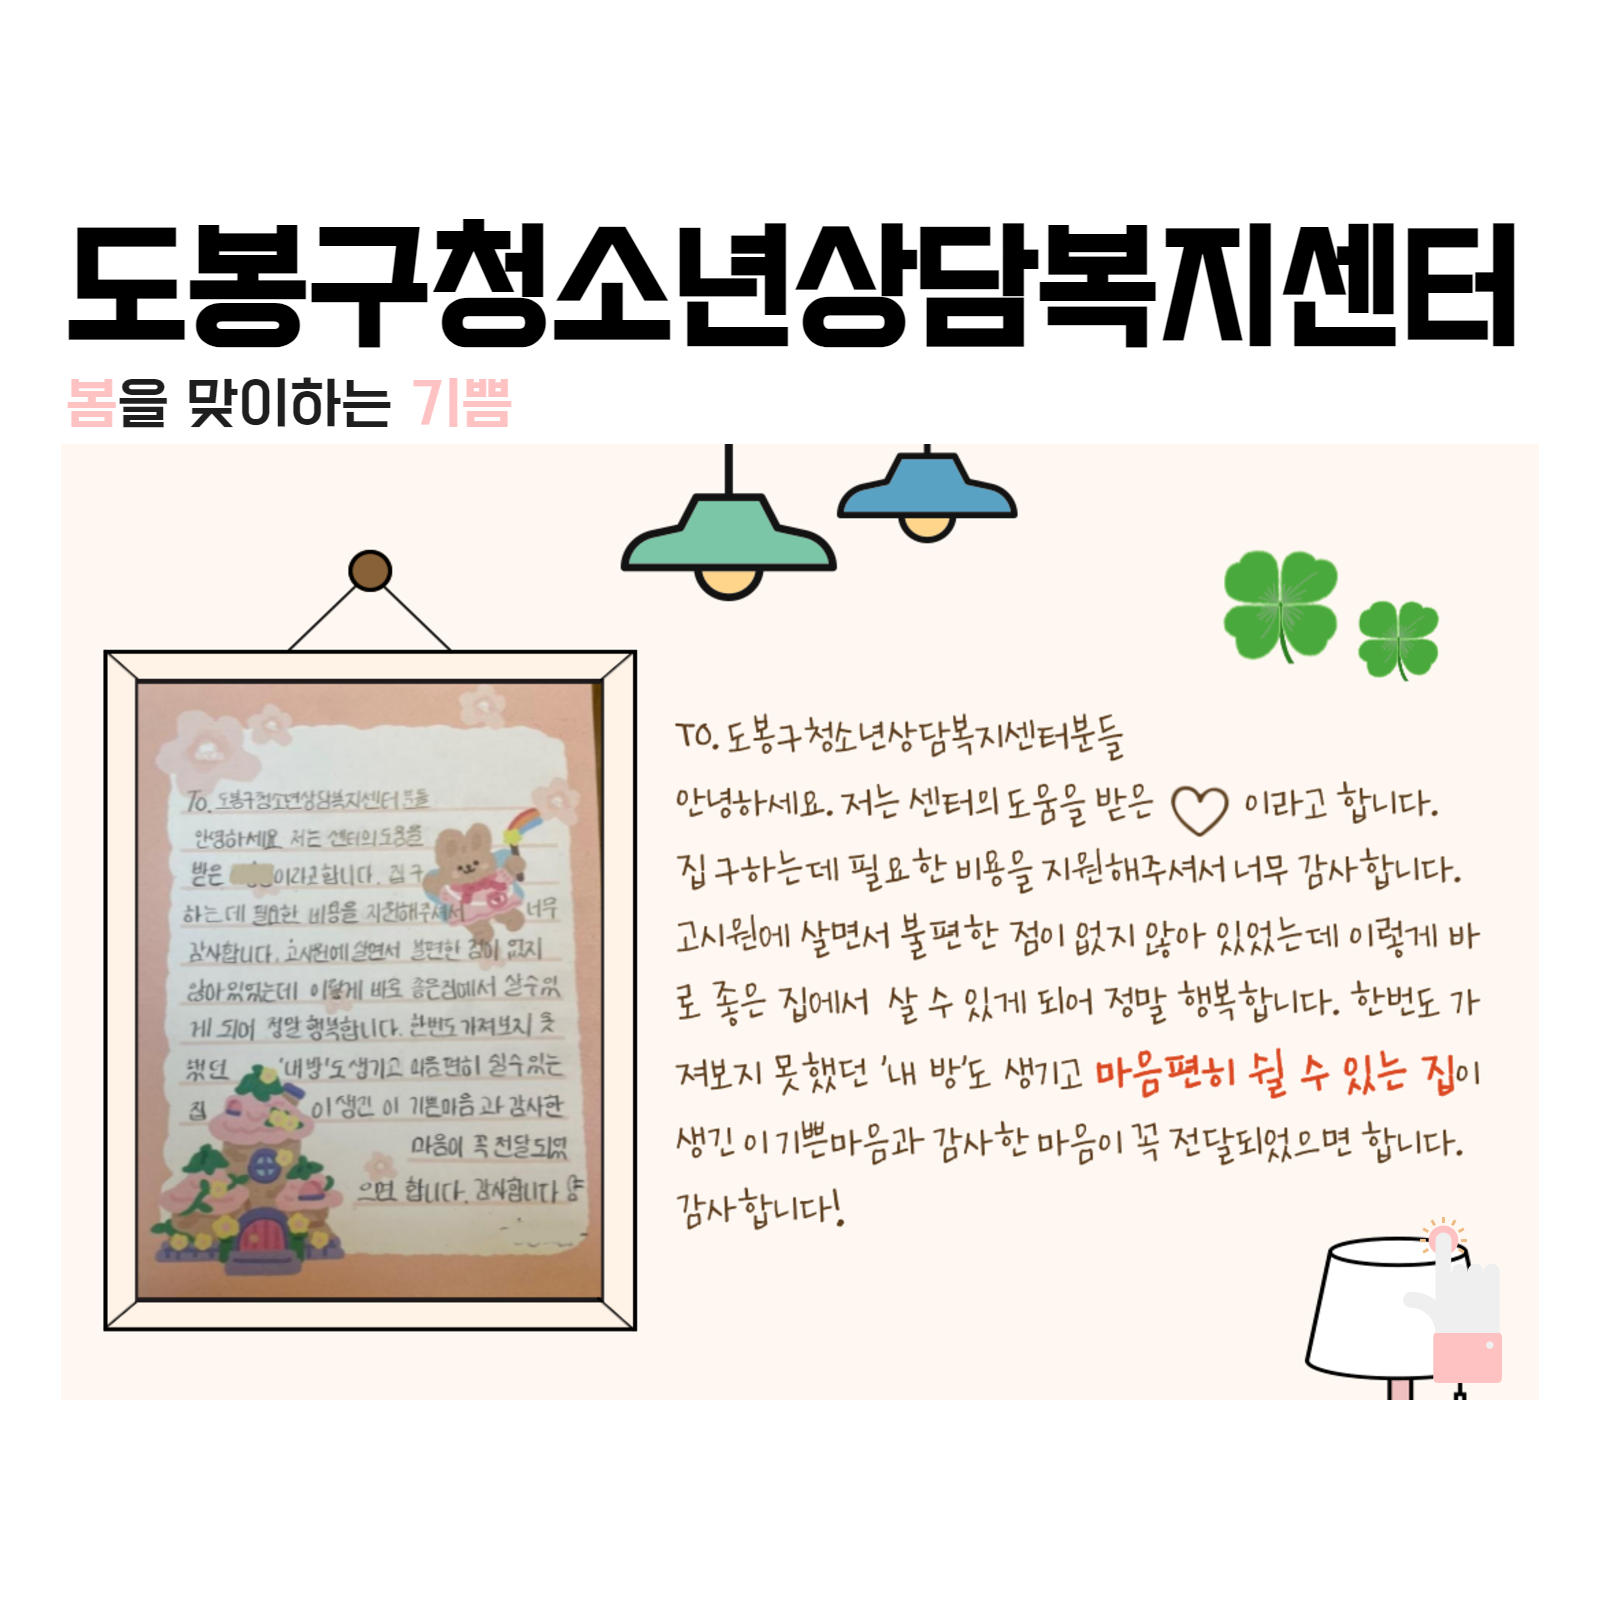 도봉구청소년상담복지센터
봄을 맞이하는 기쁨
To. 도봉구청소년상담복지센터 분들
안녕하세요 저는 센터의 도움을
받은 이라고 합니다. 집 구
하는데 필요한 비용을 지원해주셔서 너무
감사합니다. 고시원에 살면서 불편한 점이 없지
않아 있었는데 이렇게 바로 좋은집에서 살 수 있
게 되어 정말 행복합니다. 한번도 가져보지 못
했던 '내 방'도 생기고 마음 편히 쉴 수 있는
집 이 생긴 이 기쁜마음과 감사한
마음이 꼭 전달되었
으면 합니다. 감사합니다
TO. 도봉구청소년상담복지센터분들
안녕하세요. 저는 센터의 도움을 받은 ♡ 이라고 합니다.
집 구하는데 필요한 비용을 지원해주셔서 너무 감사합니다.
고시원에 살면서 불편한 점이 없지 않아 있었는데 이렇게 바
로 좋은 집에서 살 수 있게 되어 정말 행복합니다. 한번도 가
져보지 못했던 '내 방'도 생기고 마음편히 쉴 수 있는 집이
생긴 이 기쁜마음과 감사한 마음이 꼭 전달되었으면 합니다.
감사합니다!